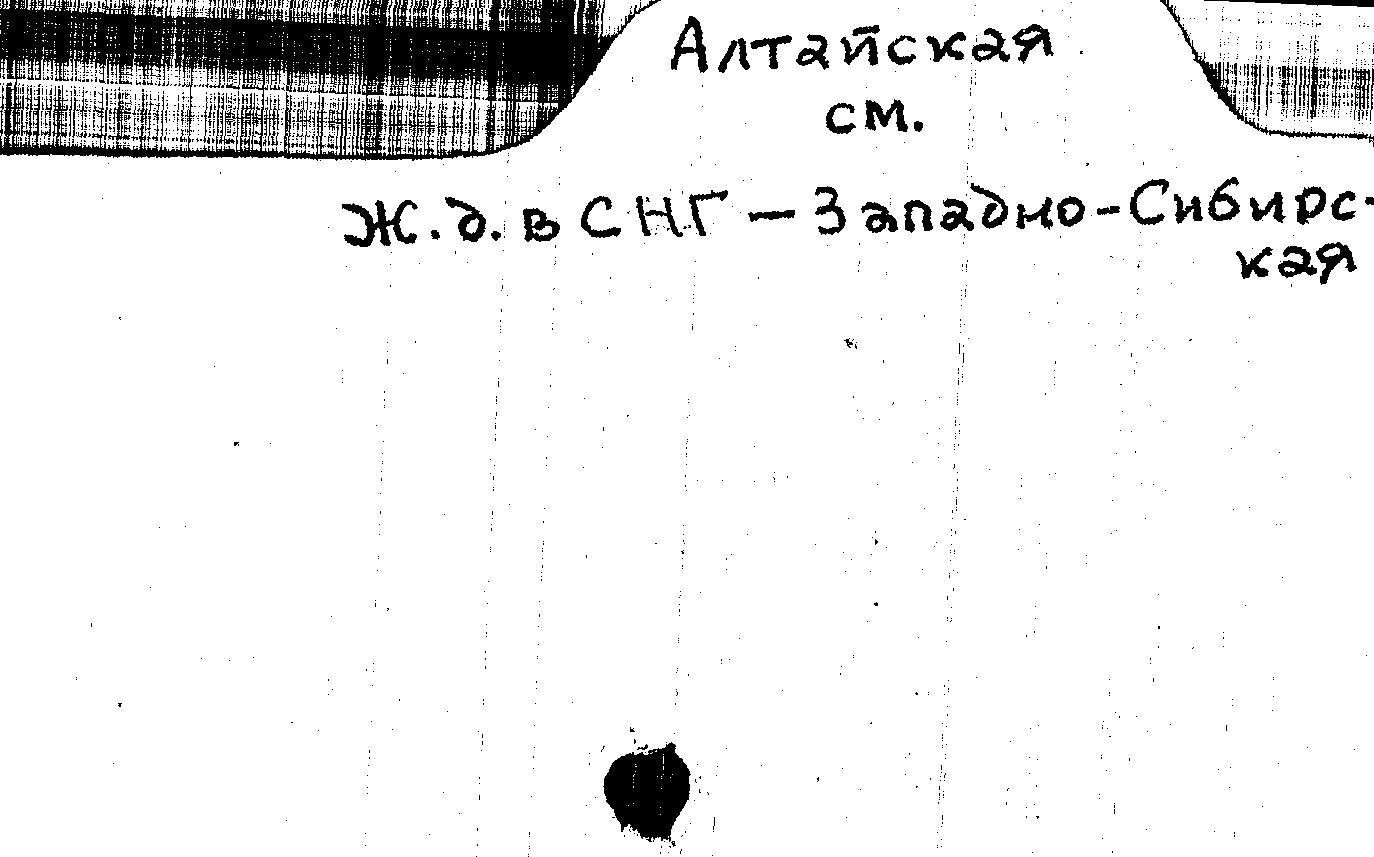 Алтайская
см.
Ж.д. в СНГ – Западно-Сибирс-
кая